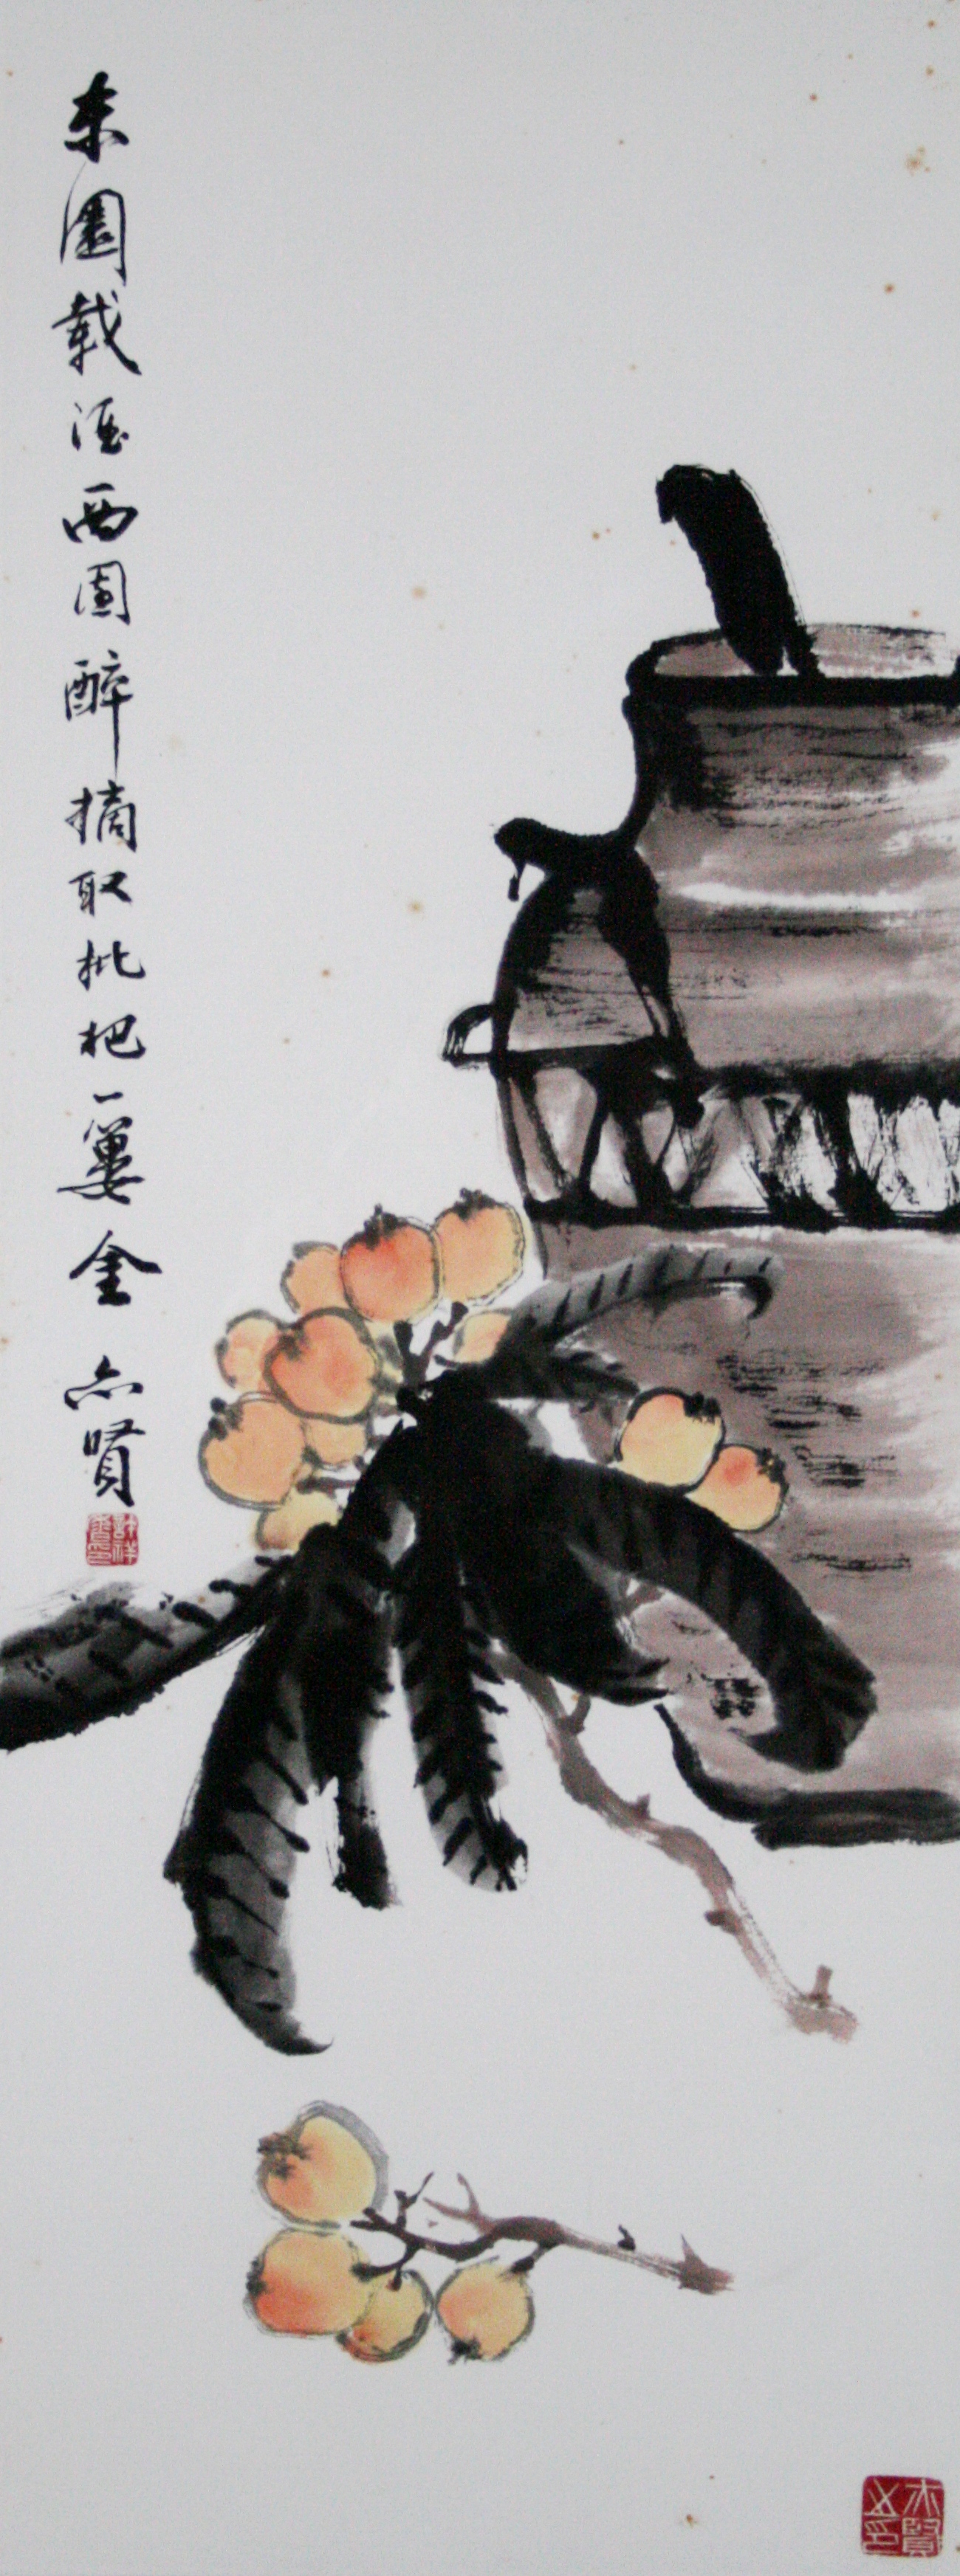 東園載酒西園醉摘取枇杷一簍金
亦賢